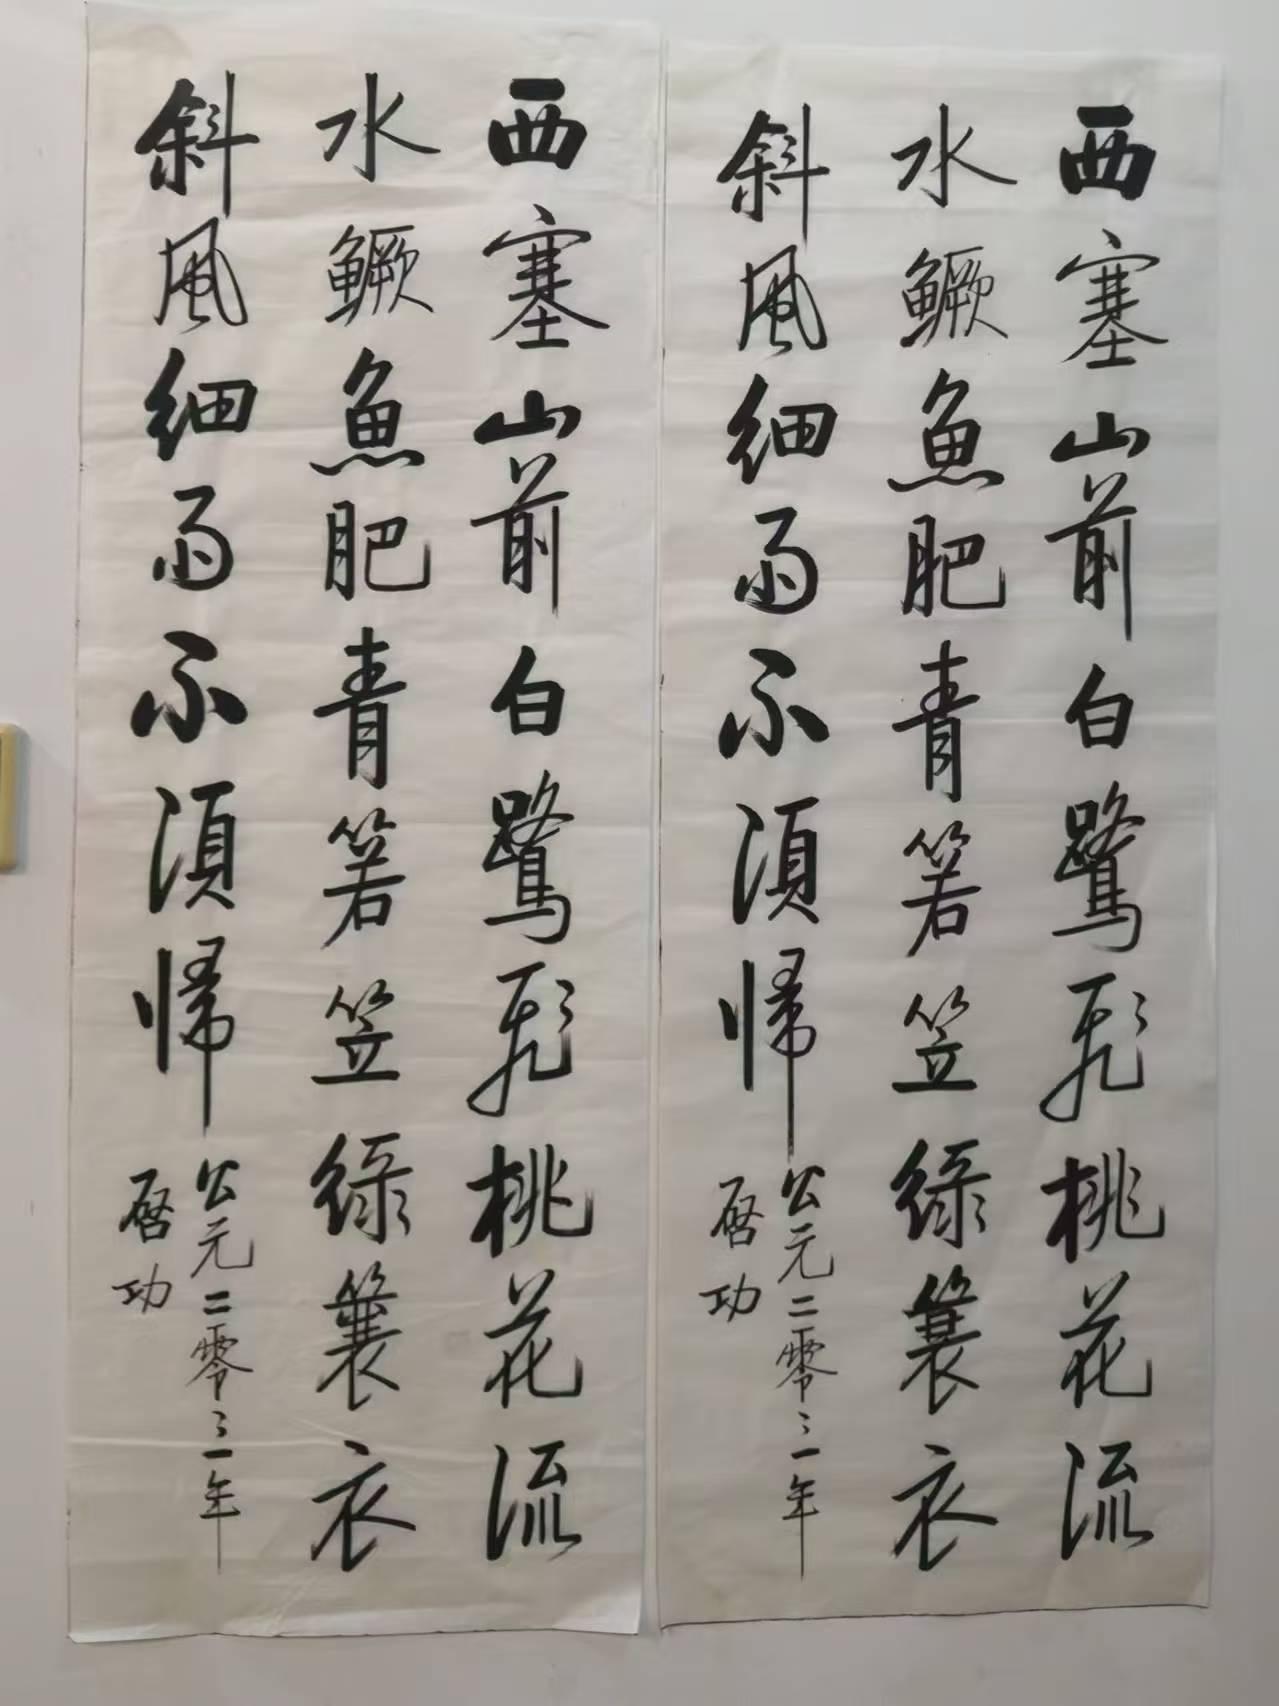 西塞山前白鷺飛桃花流
水鱖魚肥青箬笠綠簑衣
斜風細雨不須歸
公元二零二一年
启功
西塞山前白鷺飛桃花流
水鱖魚肥青箬笠綠簑衣
斜風細雨不須歸
公元二零二一年
启功